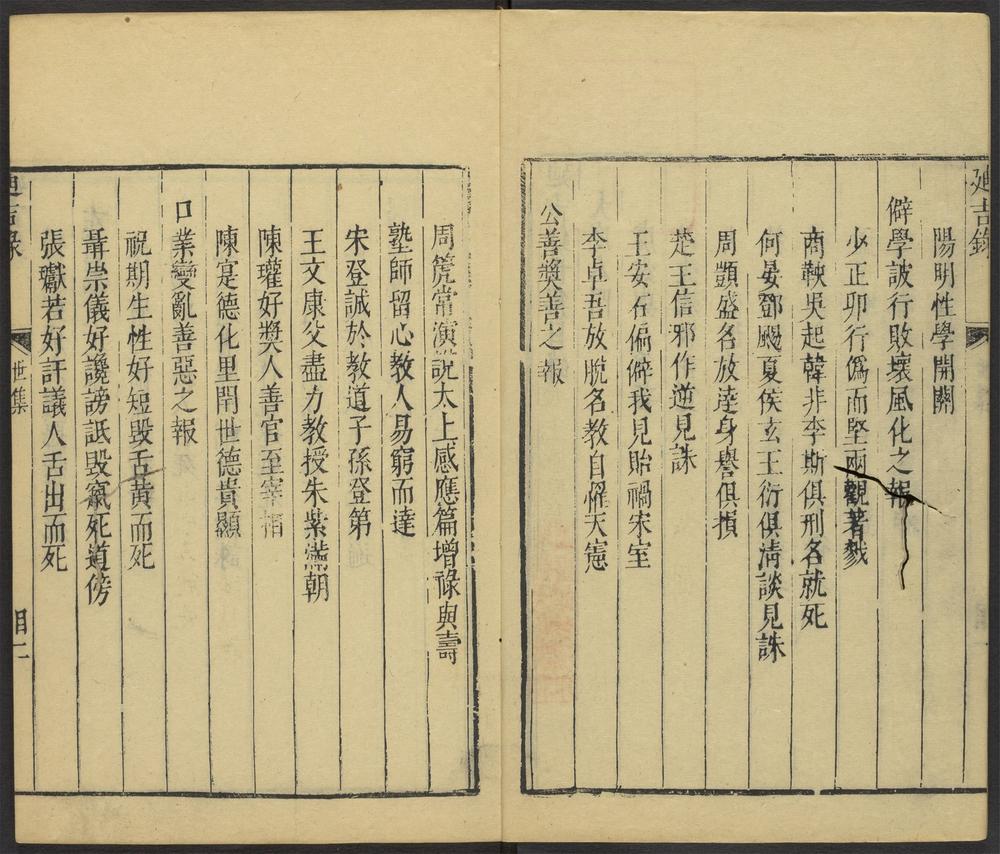 廸吉錄
陽明性學開關
僻學詖行敗壞風化之報
少正卯行僞而堅兩觀著戮
商鞅吳起韓非李斯俱刑名就死
何晏鄧颺夏侯玄王衍俱淸談見誅
周顗盛名放達身譽俱損
楚王信邪作逆見誅
王安石偏僻我見貽禍宋室
李卓吾放脫名教自罹天憲
公善獎善之報
周箎常演說太上感應篇增祿與壽
塾師留心教人易窮而達
宋登誠於教道子孫登第
王文康父盡力教授朱紫滿朝
陳瓘好獎人善官至宰相
陳寔德化里閈世德貴顯
口業變亂善惡之報
祝期生性好短毀舌黃而死
聶崇儀好讒謗詆毀竄死道傍
張瓛若好訐議人舌出而死
廸吉錄 世集 目二